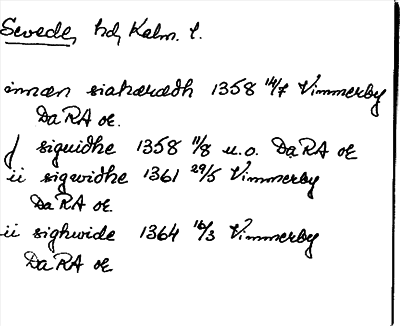 Sevede, hd, Kalm. l.
innæn siahærædh 1358 14/7 Vimmerby
DaRA or.
j siguidhe 1358 11/8 u.o. DaRA or
ii sigwidhe 1361 29/5 Vimmerby
DaRA or.
ii sighwide 1364 16/3 Vimmerby
DaRA or